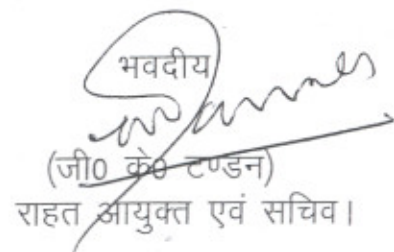 भवदीय
(जी0 के0 टण्डन)
राहत आयुक्त एवं सचिव।